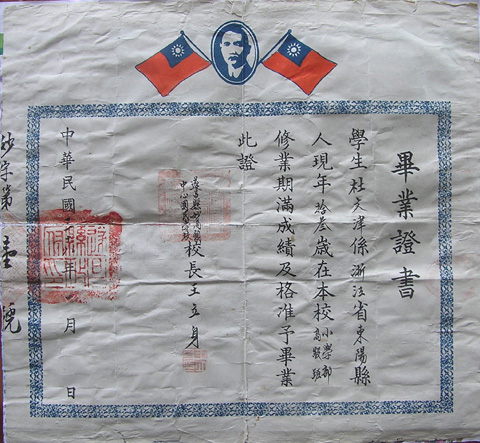 畢業證書
學生杜津係浙江省東陽縣
人現年拾叁歲在本校小學部
高級班
修業期滿成績及格准予畢業
此證
校長王立身
中華民國年月日
字第壹號